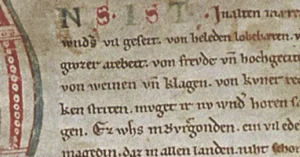 NS. IST. In alten mære
wnds vil geseit. von heleden lobebæren. v
grozer arebeit. von freude vn hochgecit
von weinen vn klagen. von kvner re
ken striten. mvget ir nv wnd horen s
gen. Ez whs in Bvrgonden. ein vil ede
magedin. daz in allen landen. niht schon